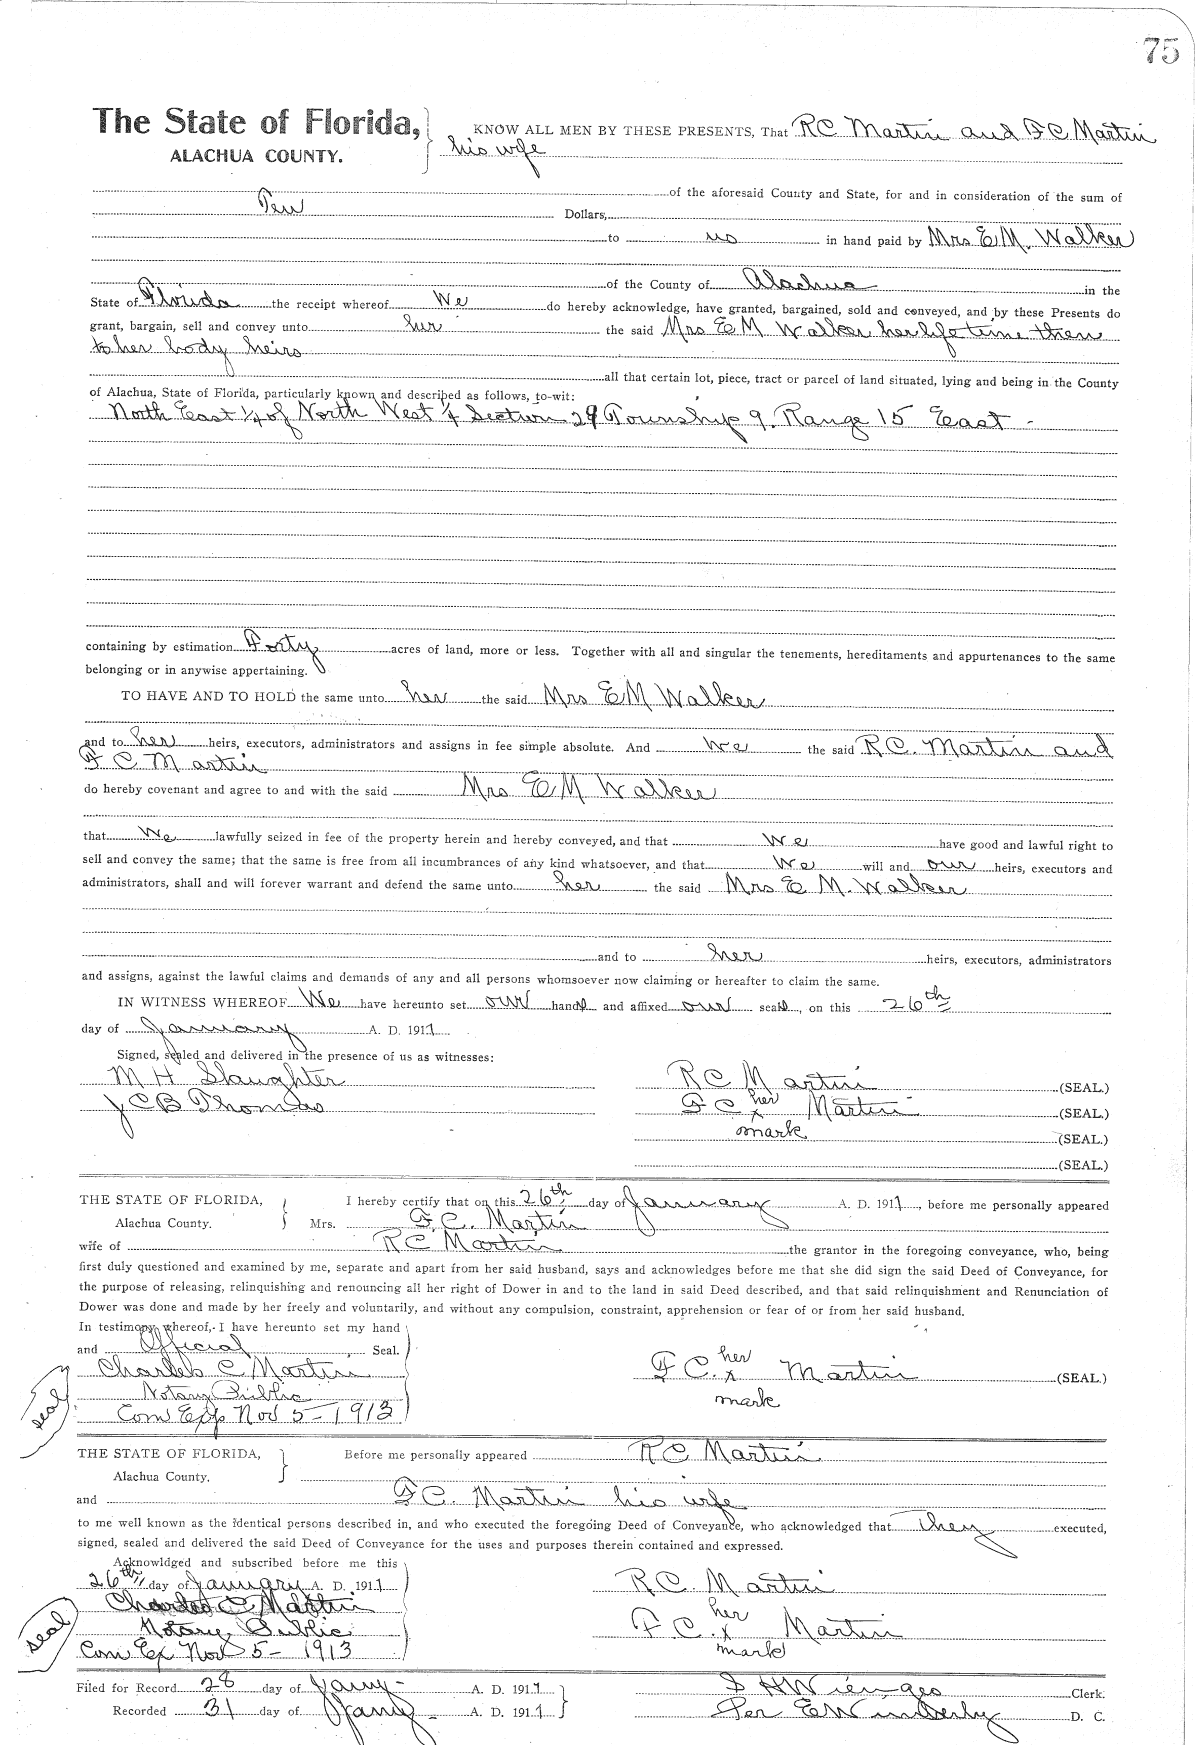 75
The State of Florida, KNOW ALL MEN BY THESE PRESENTS, That RC Martin and F C Martin
ALACHUA COUNTY. his wife
of the aforesaid County and State, for and in consideration of the sum of
Ten Dollars,
to us in hand paid by Mrs E M. Walker
of the County of Alachua in the
State of Florida the receipt whereof We do hereby acknowledge, have granted, bargained, sold and conveyed, and by these Presents do
grant, bargain, sell and convey unto her the said Mrs E M Walker her life time then
to her body heirs
all that certain lot, piece, tract or parcel of land situated, lying and being in the County
of Alachua, State of Florida, particularly known and described as follows, to-wit:
North East 1/4 of North West 1/4 Section 29 Township 9. Range 15 East -
containing by estimation Forty acres of land, more or less. Together with all and singular the tenements, hereditaments and appurtenances to the same
belonging or in anywise appertaining.
TO HAVE AND TO HOLD the same unto her the said Mrs E M Walker
and to her heirs, executors, administrators and assigns in fee simple absolute. And We the said R C. Martin and
F C Martin
do hereby covenant and agree to and with the said Mrs E M Walker
that We lawfully seized in fee of the property herein and hereby conveyed, and that We have good and lawful right to
sell and convey the same; that the same is free from all incumbrances of any kind whatsoever, and that We will and our heirs, executors and
administrators, shall and will forever warrant and defend the same unto her the said Mrs E M. Walker
and to her heirs, executors, administrators
and assigns, against the lawful claims and demands of any and all persons whomsoever now claiming or hereafter to claim the same.
IN WITNESS WHEREOF We have hereunto set our hands and affixed our seals, on this 26th
day of January A. D. 1911
Signed, sealed and delivered in the presence of us as witnesses:
M H Slaughter R C Martin (SEAL.)
J C B Thomas F C her x Martin (SEAL.)
mark (SEAL.)
(SEAL.)
THE STATE OF FLORIDA, I hereby certify that on this 26th day of January A. D. 1911, before me personally appeared
Alachua County. Mrs. F. C. Martin
wife of R C Martin the grantor in the foregoing conveyance, who, being
first duly questioned and examined by me, separate and apart from her said husband, says and acknowledges before me that she did sign the said Deed of Conveyance, for
the purpose of releasing, relinquishing and renouncing all her right of Dower in and to the land in said Deed described, and that said relinquishment and Renunciation of
Dower was done and made by her freely and voluntarily, and without any compulsion, constraint, apprehension or fear of or from her said husband.
In testimony whereof, I have hereunto set my hand
and Official Seal.
Charles C Martin F C. her x Martin (SEAL.)
Notary Public mark
seal Com Exp Nov 5 - 1913
THE STATE OF FLORIDA, Before me personally appeared R C Martin
Alachua County.
and F C. Martin his wife
to me well known as the identical persons described in, and who executed the foregoing Deed of Conveyance, who acknowledged that They executed,
signed, sealed and delivered the said Deed of Conveyance for the uses and purposes therein contained and expressed.
Acknowldged and subscribed before me this
26th day of January A. D. 1911 R C. Martin
Charles C Martin
seal Notary Public F C. her x Martin
Com Ex Nov 5 - 1913 mark
Filed for Record 28 day of Jany - A. D. 1911 S H Wienges Clerk.
Recorded 31 day of Jany - A. D. 1911 Per E Wimberly D. C.